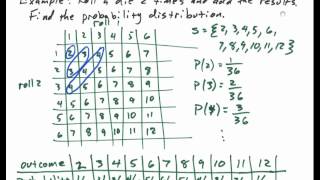 Example: Roll a die 2 times and add the results.
Find the probability distribution.
roll 1
1 2 3 4 5 6
1 2 3 4 5 6 7
2 3 4 5 6 7 8
roll 2 3 4 5 6 7 8 9
4 5 6 7 8 9 10
5 6 7 8 9 10 11
6 7 8 9 10 11 12
S = {2, 3, 4, 5, 6,
7, 8, 9, 10, 11, 12}
P(2) = 1/36
P(3) = 2/36
P(4) = 3/36
outcome 2 3 4 5 6 7 8 9 10 11 12